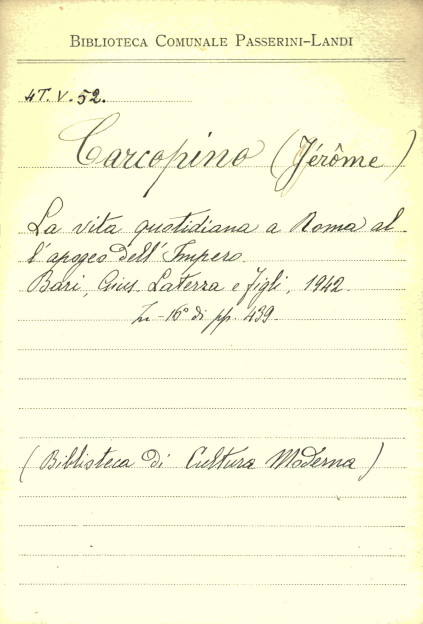 BIBLIOTECA COMUNALE PASSERINI-LANDI
4T. V. 52.
Carcopino (Jérôme)
La vita quotidiana a Roma al
l'apogeo dell'Impero.
Bari, Gius. Laterza e figli, 1942.
In-16° di pp. 439.
(Biblioteca di Cultura Moderna)